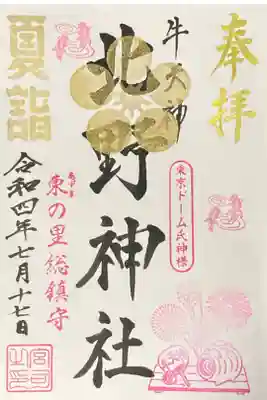 奉拝
東京ドーム氏神様
牛天神
北野神社
夏詣
東の里総鎮守
令和四年七月十七日
宮司之印